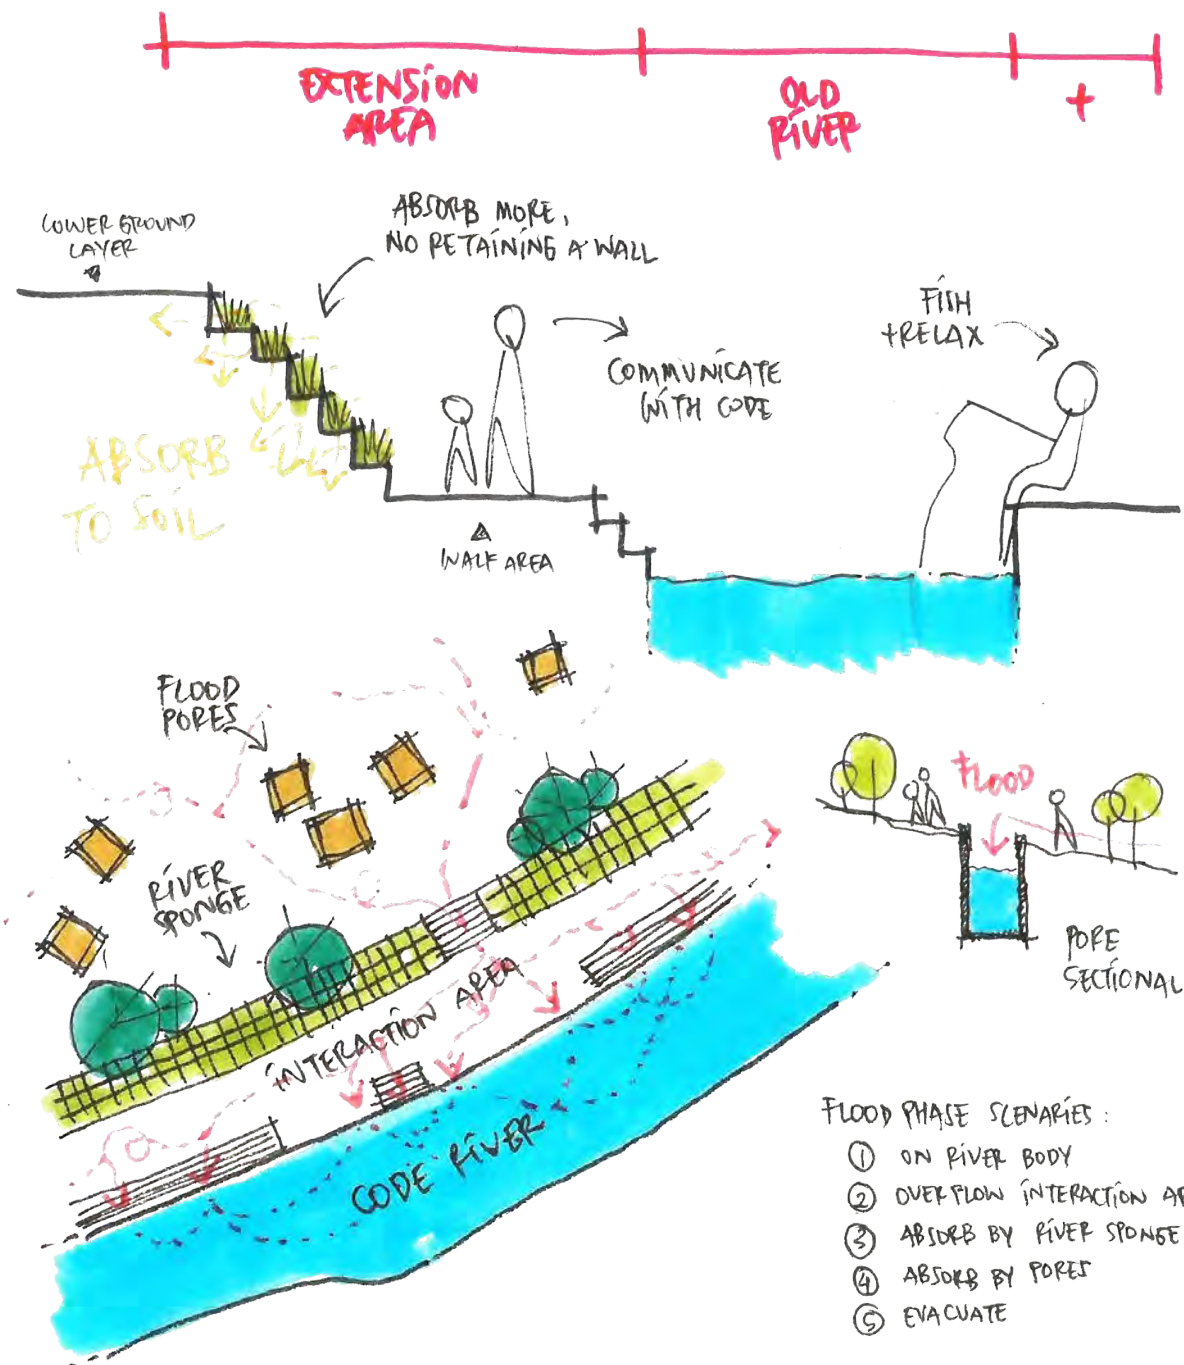 EXTENSION
AREA
OLD
RIVER
+
LOWER GROUND
LAYER
ABSORB MORE,
NO RETAINING A WALL
FISH
+RELAX
COMMUNICATE
WITH CODE
ABSORB
TO SOIL
WALK AREA
FLOOD
PORES
RIVER
SPONGE
INTERACTION AREA
CODE RIVER
FLOOD
PORE
SECTIONAL
FLOOD PHASE SCENARIES :
1 ON RIVER BODY
2 OVERFLOW INTERACTION AR
3 ABSORB BY RIVER SPONGE
4 ABSORB BY PORES
5 EVACUATE